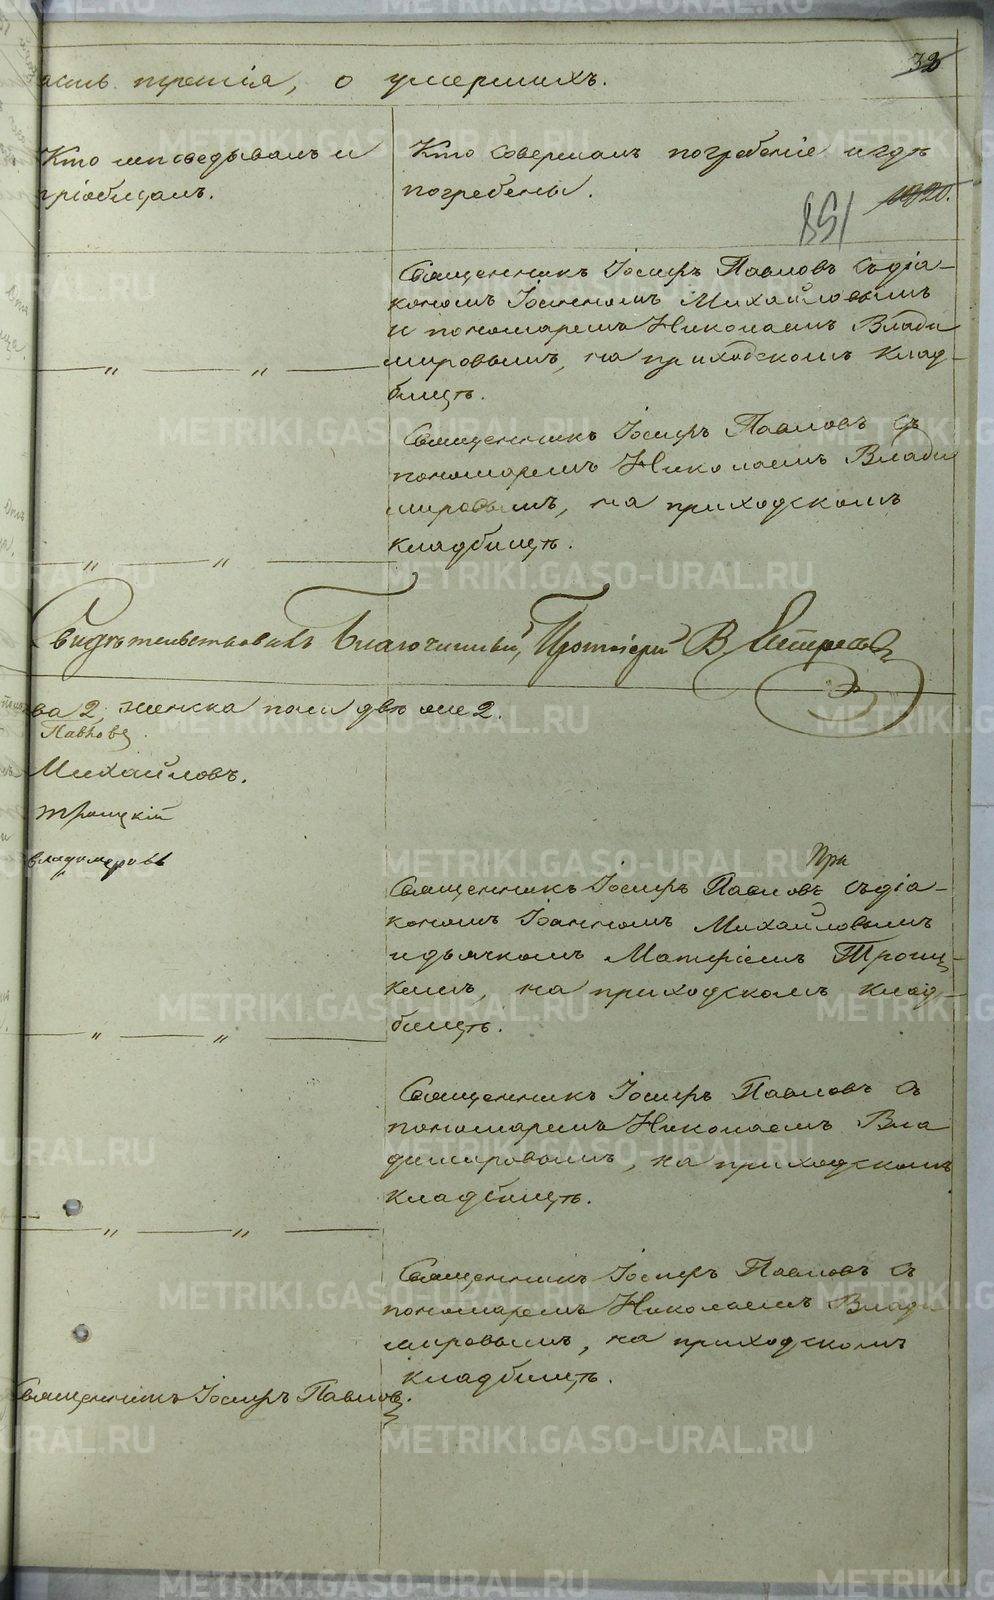 асть третія, о умершихъ.
Кто исповѣдывалъ и
пріобщалъ.
Кто совершалъ погребеніе и гдѣ
погребены.
Священникъ Іосифъ Павловъ съ діа-
кономъ Іоанномъ Михайловымъ
и пономаремъ Николаемъ Влади
мировымъ, на приходскомъ клад-
бищѣ.
Священникъ Іосифъ Павловъ съ
пономаремъ Николаемъ Влади
мировымъ, на приходскомъ
кладбищѣ.
Свидѣтельствовалъ Благочинный, Протоіерей В.
ва 2, женска пола двѣ 2.
Павловъ
Михайловъ.
Троицкій
Владимировъ
При
Священникъ Іосифъ Павловъ съ діа-
кономъ Іоанномъ Михайловымъ
и дьячкомъ Матфіемъ Троиц-
кимъ, на приходскомъ клад-
бищѣ.
Священникъ Іосифъ Павловъ съ
пономаремъ Николаемъ Вла
димировымъ, на приходскомъ
кладбищѣ.
Священникъ Іосифъ Павловъ съ
пономаремъ Николаемъ Влади
мировымъ, на приходскомъ
кладбищѣ.
Священникъ Іосифъ Павловъ.
METRIKI.GASO-URAL.RU